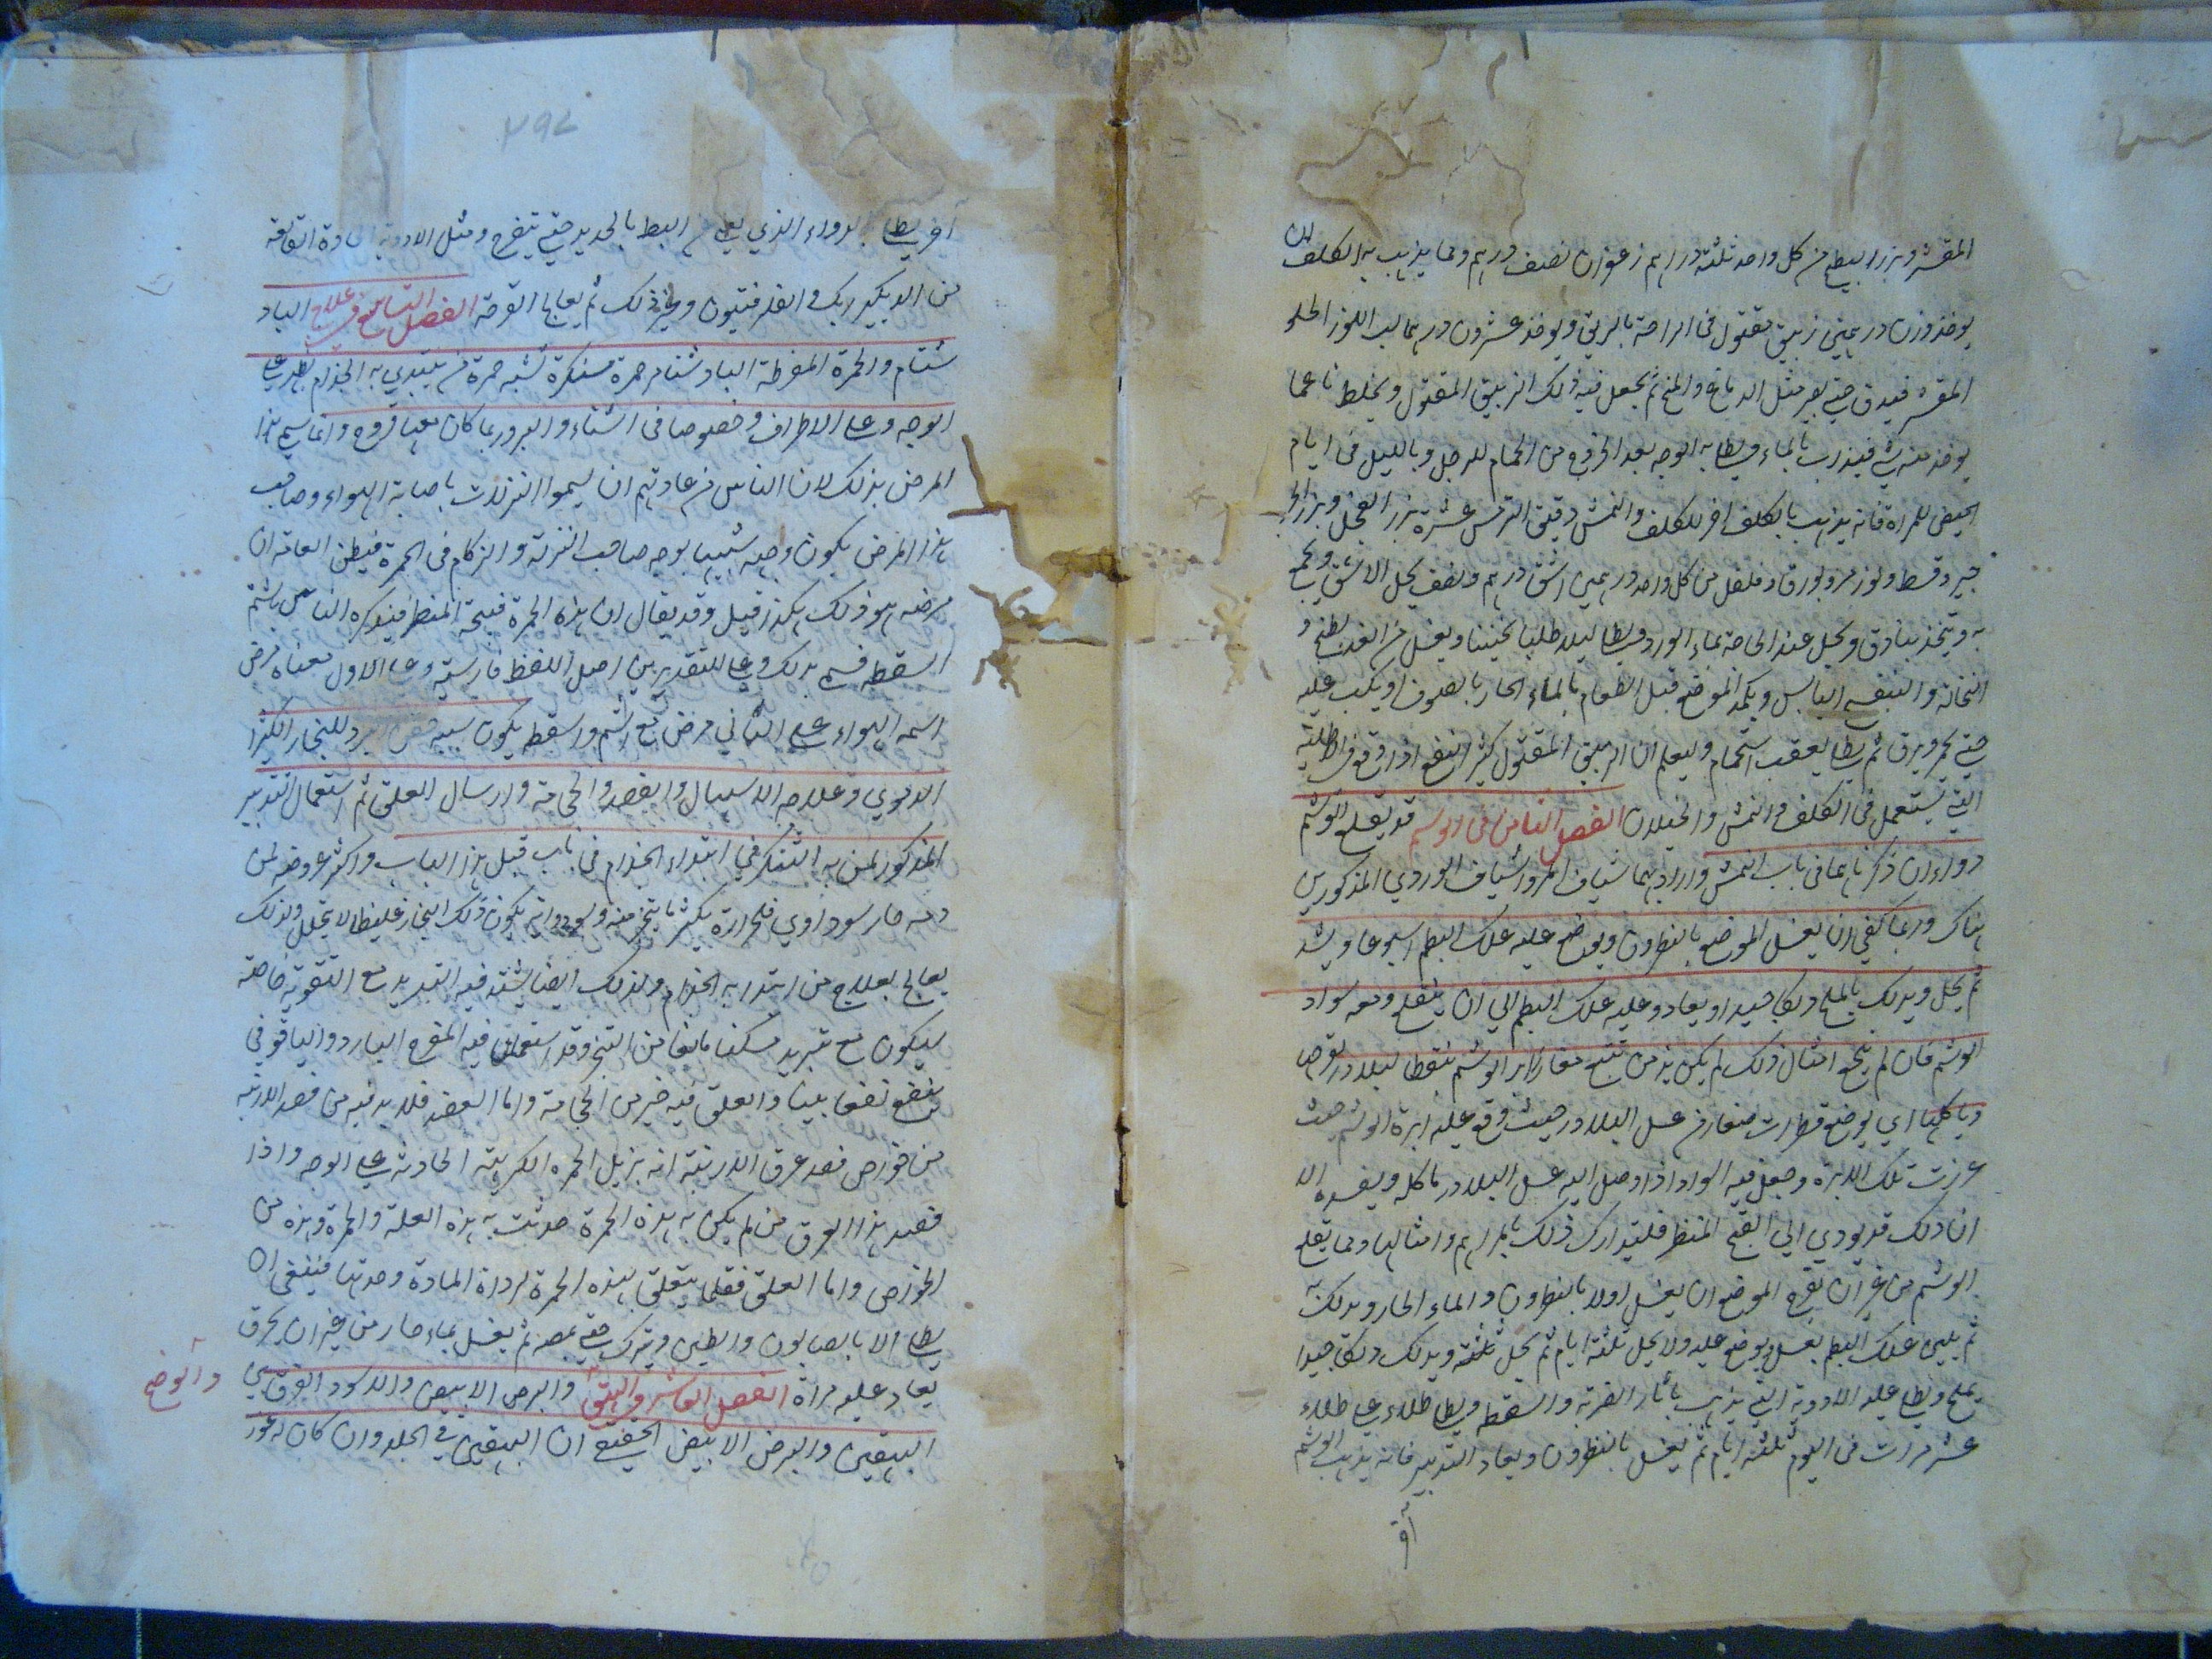 المقشر وبزر البطيخ من كل واحد ثلثة دراهم زعفران نصف درهم ومما يذهب به الكلف ان
يوخذ وزن درهمين زيبق مقتول فى الراحة بالريق ويوخذ عشرون درهما لب اللوز الحلو
المقشر فيدق حتى يصير مثل الدماغ والمخ ثم يجعل فيه ذلك الزيبق المقتول ويخلط ناعما
يوخذ منه شى فيذاب بالماء ويطلى به الوجه بعد الخروج من الحمام للرجل وبالليل فى ايام
الحيض للمراة فانه يذهب بالكلف اخر للكلف والنمش دقيق الترمس عشرة بزر الفجل وبزر
جير وقسط ولوز مر وبورق وفلفل من كل واحد درهمين اشق درهم ونصف يحل الاشق ويجمع
به ويتخذ بنادق ويحل عند الحاجة بماء الورد ويطلى ليلا طليا ثخينا ويغسل من الغد بطبخ
النخالة والبنفسج اليابس ويكمد الموضع قبل الطعام بالماء الحار بالصوف او يكب عليه
حتى يحمر ويرق ثم يطلى بعقب استحمام وليعلم ان الزيبق المقتول كثير النفع اذا وقع فى اطلية
التى يستعمل فى الكلف والنمش والخيلان الفصل الثامن فى الوشم قد يقلع الوشم
دواءان ذكرناهما فى باب النمش واراد بهما شياف المر وشياف الوردي المذكورين
هناك وربما كفى ان يغسل الموضع بالنطرون ويوضع عليه علك البطم اسبوعا ويشد
ثم يحل ويدلك بالملح دلكا جيدا ويعاد عليه علك البطم الي ان ينقلع ومعه سواد
الوشم فان لم ينجح امثال ذلك لم يكن بد من تتبع مغارز ابر الوشم بنقط البلادر ليقرحها
وياكلها اي يوضع قطرات صغار من عسل البلادر حيث وقع عليه ابرة الوشم حيث
غرزت تلك الابرة وجعل فيه السواد اذا وصل اليه عسل البلادر ياكله ويفسده الا
ان ذلك قد يودي الي القبح المنظر فليتدارك ذلك بالمراهم وامثالها ومما يقلع
الوشم من غير ان يقرح الموضع ان يغسل اولا بالنطرون والماء الحار ويدلك به
ثم يلين علك البطم بعسل ويوضع عليه ولا يحل ثلثة ايام ثم يحل ثلثة ويدلك دلكا جيدا
بملح ويطلى عليه الادوية التى يذهب باثار الضربة والسقطة ويطلى طلاء على طلاء
عشر مرات فى اليوم ثلثة ايام ثم يغسل بالنطرون ويعاد التدبير فانه يذهب الوشم
آخر
٢٩٢
آخر يطلى بالدواء الذي يغني عن البط بالحديد حتى يتقرح ومثل الادوية الحادة القالعة
من الديكبرديك والفلدفيون وغير ذلك ثم يعالج القرحة الفصل التاسع فى علاج الباد
شنام والحمرة المفرطة البادشنام حمرة منكرة تشبه حمرة من يبتدي به الجذام يظهر على
الوجه وعلى الاطراف وخصوصا فى الشتاء والبرد وربما كان معها قروح وانما سمى هذا
المرض بذلك لان الناس من عادتهم ان يسموا النزلات باصابة الهواء وصاحب
هذا المرض يكون وجهه شبيها بوجه صاحب النزلة والزكام فى الحمرة فيظن العامة ان
مرضه هو ذلك هكذا قيل وقد يقال ان هذه الحمرة قبيحة المنظر فيذكره الناس بشتم
السقطه فسمى بذلك وعلى التقديرين اصل اللفظ فارسية وعلى الاول معناه مرض
اسمه الهواء وعلى الثاني مرض مع شتم واسقط يكون سببه حقن البرد للبخار الكثير
الدموي وعلاجه الاسهال والفصد والحجامة وارسال العلق ثم استعمال التدبير
المذكور لمن به التنكر في ابتداء الجذام فى باب قبل هذا الباب واكثر عروضه لمن
دمه حار سوداوي فلحرارة يكثر ما يتبخر منه ولسوداويته يكون ذلك البخار غليظا لا يتحلل ولذلك
يعالج بعلاج من ابتدا به الجذام ولذلك ايضا يشتد فيه التبريد مع التقوية خاصة
ليكون مع تبريد مسكنا مانعا من التبخر وقد استعمل فيه المفرح البارد والياقوتي
فنفع نفعا بينا والعلق فيه خير من الحجامة واما الفصد فلابد فيه من فصد الارنبة
من خواص فصد عرق الارنبة انه يزيل الحمرة الكريهة الحادثة على الوجه واذا
فصد هذا العرق من لم يكن به هذه الحمرة حدثت به هذه العلة والحمرة وهذه من
الخواص واما العلق فقلما يتعلق بهذه الحمرة لرداة المادة وحدتها فينبغى ان
يطلى الا بالصابون والطين ويترك حتى يمصه ثم يغسل بماء حار من غير ان يحرق
يعاد عليه مراة الفصل العاشر فى البهق والبرص الابيض والاسود القوابي
والوضح
البهقين والبرص الابيض الحقيقي ان البهقين فى الجلد وان كان له غور